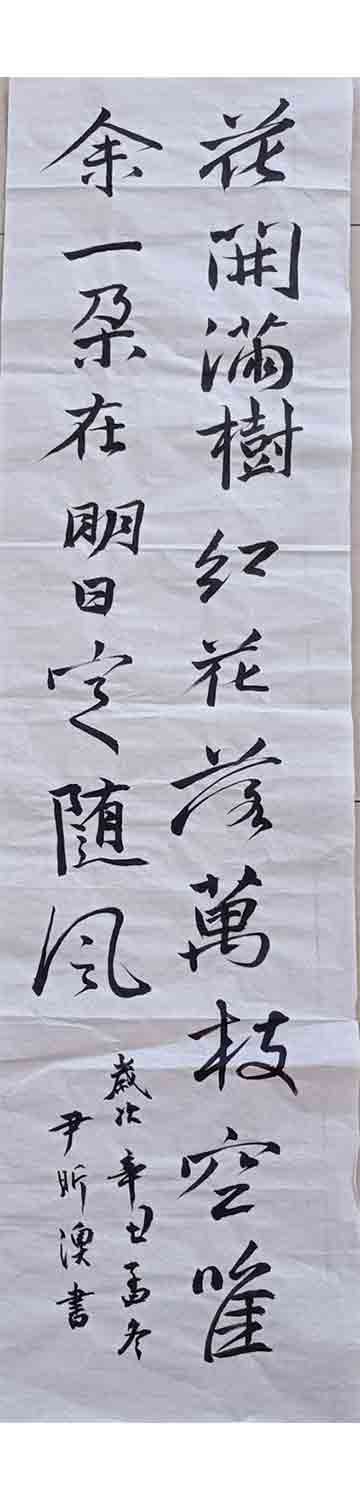 花開满樹紅花落萬枝空唯
余一朶在明日定随风
歲次辛丑孟冬
尹昕澳書